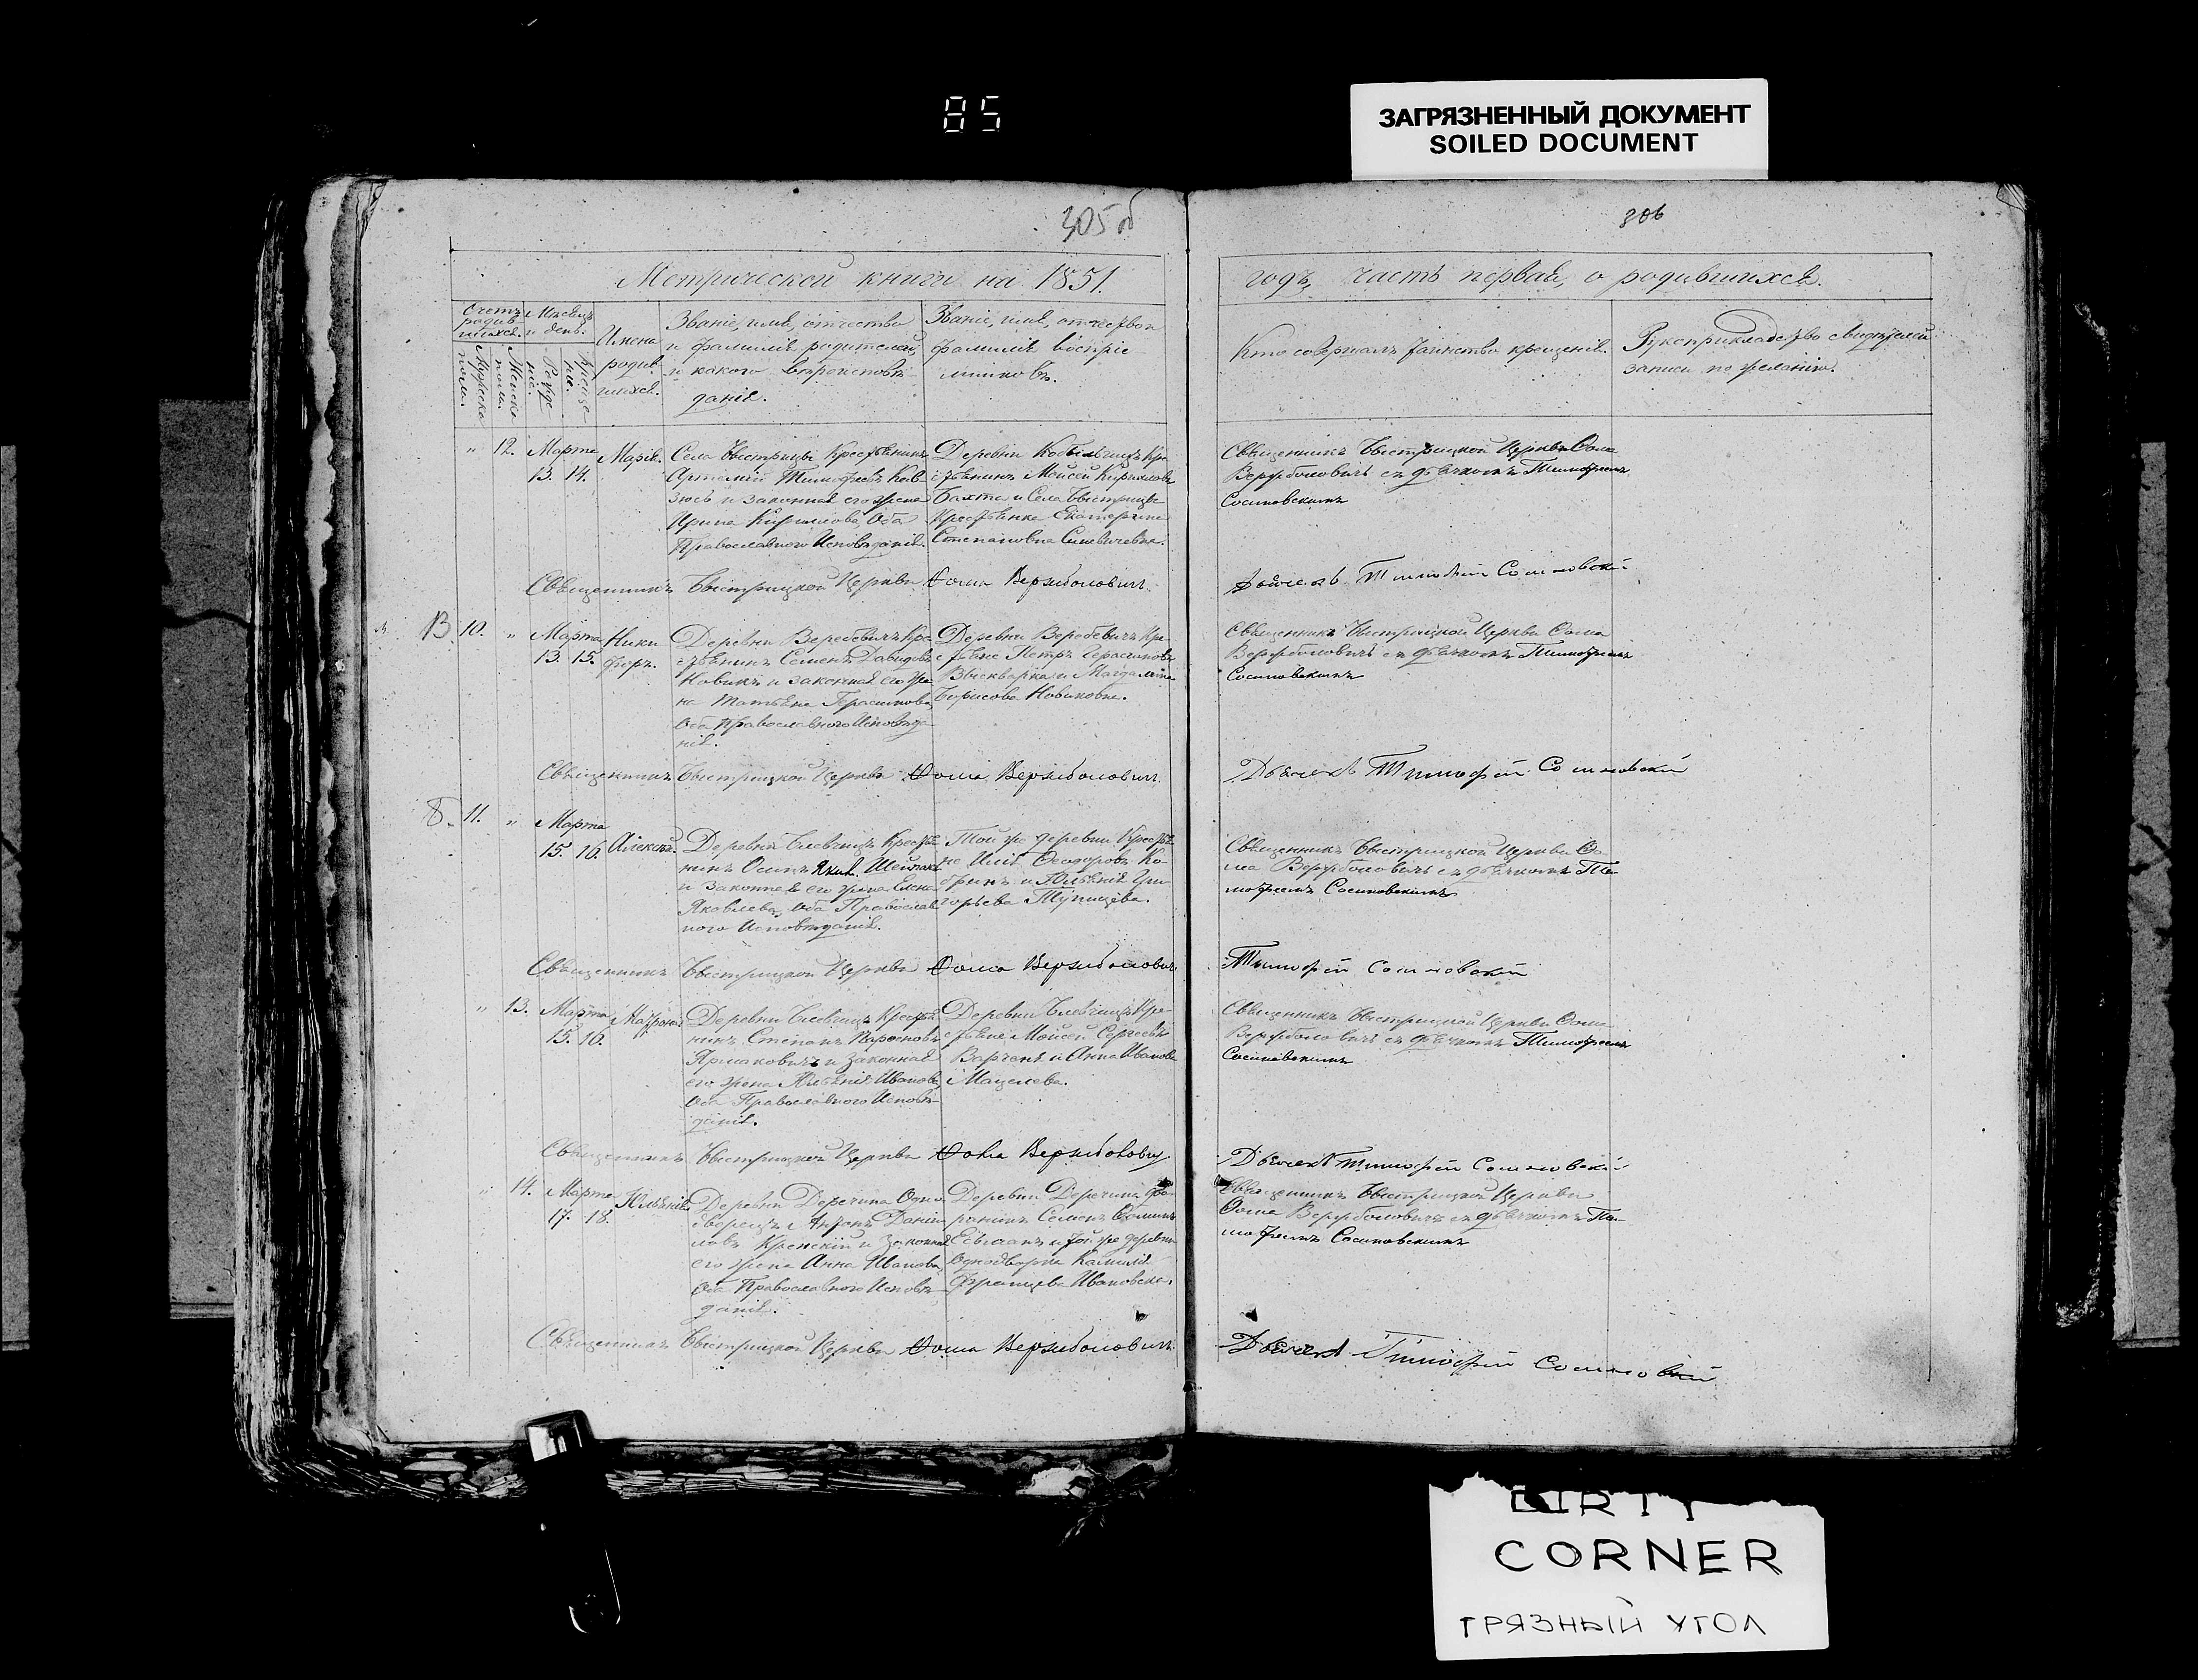 85
ЗАГРЯЗНЕННЫЙ ДОКУМЕНТ
SOILED DOCUMENT
305 об
306
Метрической книги на 1851.
годъ, часть первая, о родившихся.
Счетъ родив шихся.
Мужеска пола.
Женска пола.
Мѣсяцъ и день.
Рожде ніе.
Креще ніе.
Имена
родив
шихся.
Званіе, имя, отчество
и фамилія родителей,
и какого вѣроисповѣ
данія.
Званіе, имя, отчество и
фамилія воспріе
мниковъ.
Кто совершалъ таинство крещенія.
Рукоприкладство свидѣтелей
записи по желанію.
" 12. Марта
13. 14.
Марія.
Села Быстрицы Крестьянинъ
Артемій Тимофеевъ
и законная его жена
Ирина Кириллова, Оба
Православнаго Исповѣданія.
Деревни Кобыльчицъ Кре
стьянинъ Мойсей Кирилловъ
Бахта и Села Быстрицы
Крестьянка Екатерина
Степановна
Священникъ Быстрицкой Церкви Ѳома
Вержболовичъ съ дьячкомъ Тимофеемъ
Сосиновскимъ
Священникъ Быстрицкой Церкви Ѳома Вержболовичъ
Дьячекъ Тимофей Сосиновскій
13. 10. " Марта
13. 15.
Ники
форъ.
Деревни Веребевичъ Кре
стьянинъ Семенъ Давидовъ
Новикъ и законная его же
на Татьяна Герасимова,
Оба Православнаго Исповѣда
нія.
Деревни Веребевичъ Кре
стьяне Петръ Герасимовъ
и Магдалина
Борисова Новиковна.
Священникъ Быстрицкой Церкви Ѳома
Вержболовичъ съ дьячкомъ Тимофеемъ
Сосиновскимъ
Священникъ Быстрицкой Церкви Ѳома Вержболовичъ
Дьячекъ Тимофей Сосиновскій
8. 11. " Марта
15. 16.
Алексѣй.
Деревни Крестья
нинъ Осипъ
и законная его жена Елена
Яковлева, Оба Православ
наго Исповѣданія.
Той же деревни Крестья
не Илія Ѳеодоровъ Ко
и Юльянія Гри
горьева
Священникъ Быстрицкой Церкви Ѳо
ма Вержболовичъ съ дьячкомъ Ти
мофеемъ Сосиновскимъ.
Священникъ Быстрицкой Церкви Ѳома Вержболовичъ
Тимофей Сосиновскій
" 13. Марта
15. 16.
Матрона
Деревни Крестья
нинъ Степанъ
Ярмаковичъ и законная
его жена Юльянія Иванова,
Оба Православнаго Исповѣ
данія.
Деревни Кре
стьяне Мойсей Сергеевъ
и Анна Иванова
Мацелева.
Священникъ Быстрицкой Церкви Ѳома
Вержболовичъ съ дьячкомъ Тимофеемъ
Сосиновскимъ
Священникъ Быстрицкой Церкви Ѳома Вержболовичъ
Дьячекъ Тимофей Сосиновскій
" 14. Марта
17. 18.
Юльянія
Деревни Деречина Одно
дворецъ Антонъ Дани
ловъ и законная
его жена Анна Иванова,
Оба Православнаго Исповѣ
данія.
Деревни Деречина
Семенъ
и той же деревни
Однодворка Камилія
Францева Ивановска.
Священникъ Быстрицкой Церкви
Ѳома Вержболовичъ съ дьячкомъ Ти
мофеемъ Сосиновскимъ
Священникъ Быстрицкой Церкви Ѳома Вержболовичъ
Дьячекъ Тимофей Сосиновскій
DIRTY
CORNER
ГРЯЗНЫЙ УГОЛ